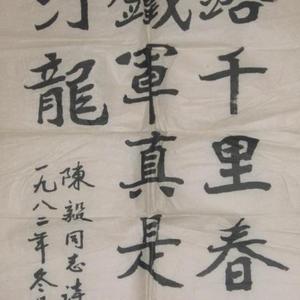 千里春
鐵軍真是
龍
陳毅同志詩
一九八二年冬